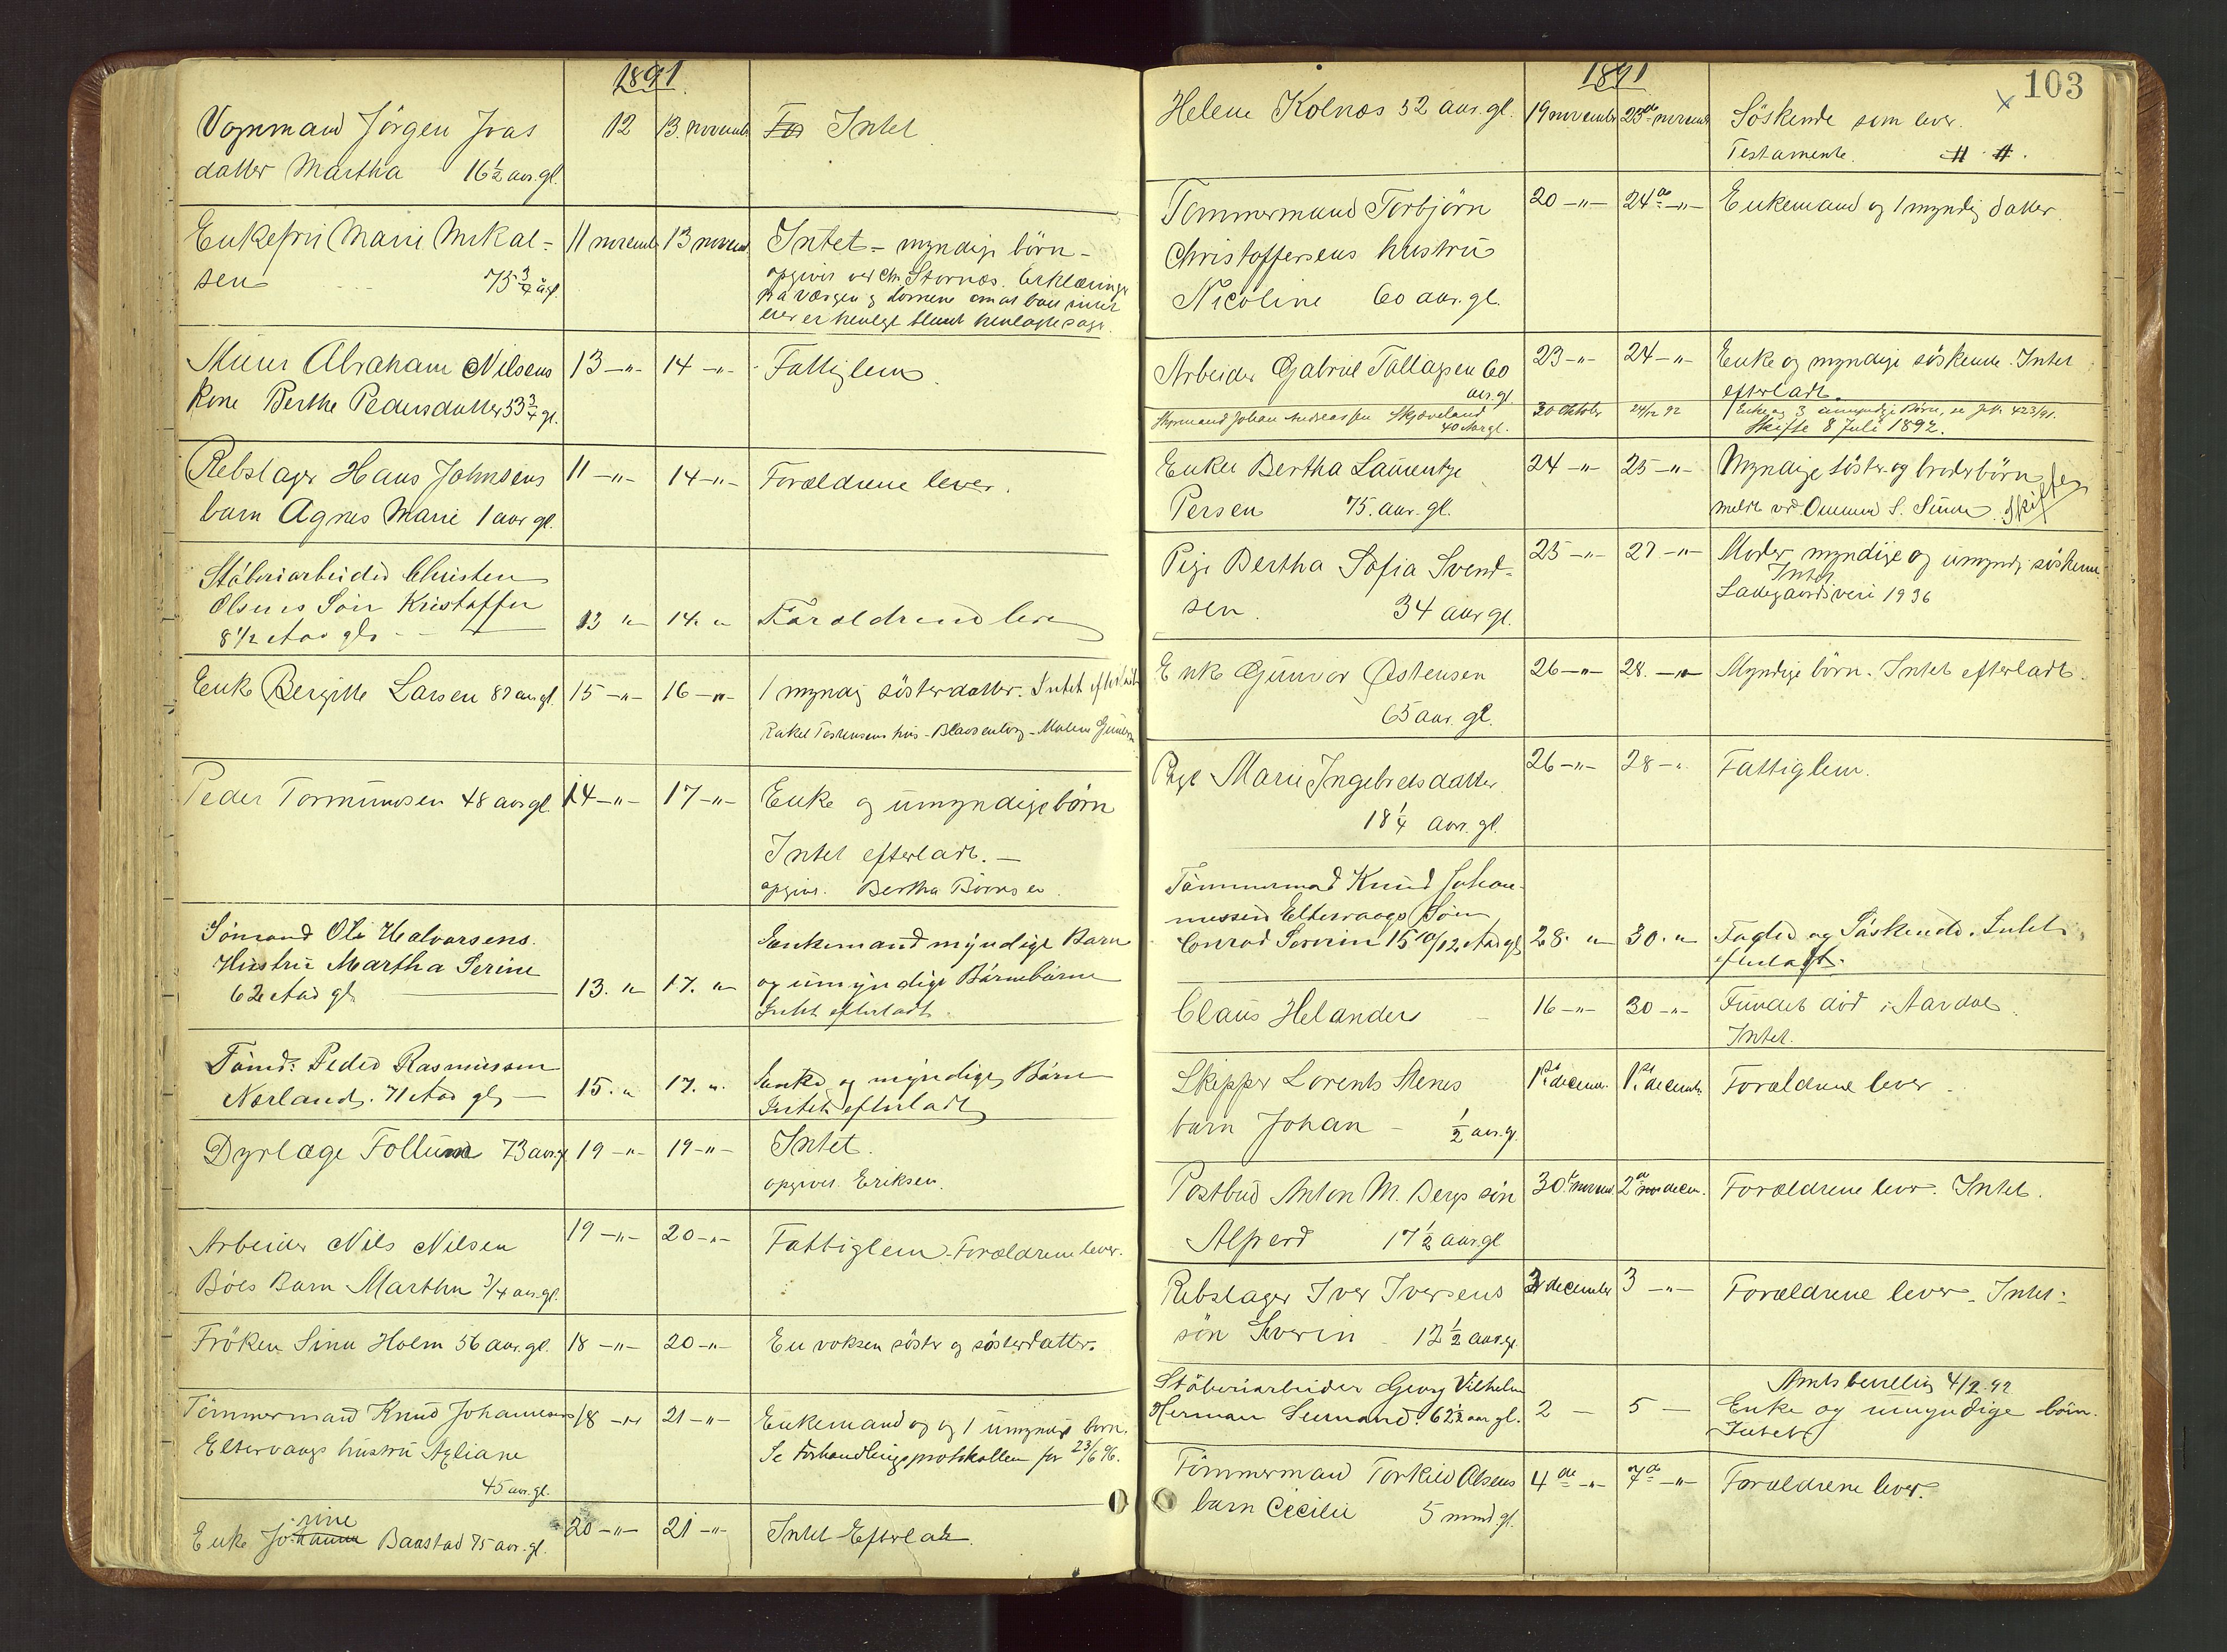 1891.
Vognmand Jörgen Ivas 12 13. novemb Intet
datter Martha 16½ aar. gl.
Enkefru Marie Mikal- 11 novemb 13 novemb Intet - myndige börn -
sen 75¾ a gl. opgiver ved Chr. Stornæs. Erklæring
Murer Abraham Nilsens 13 -"- 14 -"- Fattiglem.
Kone Berthe Pedersdatter 53¾ gl.
Rebslager Hans Johnsens 11 -"- 14 -"- Forældrene lever.
barn Agnes Marie 1 aar gl.
Stöberiarbeider Christen
Olsens Sön Kristoffer
8 1/2 Aar gl. 13 " 14. " Forældrene lever
Enke Bergitte Larsen 87 aar gl. 15 -"- 16 -"- 1 myndig sösterdatter. Intet efterladt
Rakel Torstensens hus - Blaasenborg - Malene
Peder Tormundsen 48 aar gl. 14 -"- 17 -"- Enke og umyndige börn
Intet efterladt. -
opgiver. Bertha
Sömand Ole Halvorsens Enkemand myndige Barn
Hustru Martha Serine og umyndige Börnebörn
62 Aar gl. 13. " 17. " Intet efterladt.
Tömd: Peder Rasmussen Enke og myndige Börn
Norland. 71 Aar gl. 15. " 17. " Intet efterladt
Dyrlæge Follum 73 aar gl 19 -"- 19 -"- Intet.
opgiver Eriksen.
Arbeider Nils Nilsen 19 -"- 20 -"- Fattiglem. Forældrene lever.
Böes Barn Martha 3/4 aar. gl.
Fröken Sina Holm 56 aar. gl. 18 -"- 20 -"- En voksen söster og sösterdatter.
Tömmermand Knud Johannesens 18 -"- 21 -"- Enkemand og og 1 umyndig barn.
Eltervaags hustru Agliane Se Forhandlingsprotokollen for 23/6 96.
45 aar. gl.
rine
Enke Johanne Baastad 75 aar. gl. 20 -"- 21 -"- Intet Efterladt.
1891
103
Helene Kolnæs 52 aar. gl. 19 november 23de novemb Söskende som lever.
Testamente.
Tömmermand Torbjörn 20 -"- 24de -"- Enkemand og 1 myndig datter.
Christoffersens hustru
Nicoline 60 aar. gl.
Arbeider Gabriel Tallagsen 60 23 -"- 24 -"- Enke og myndige söskende. Intet
aar. gl. efterladt.
Johan Andreassen Skjæveland 30 Oktober 24/12 92 Enke og 3 umyndige Börn, se 423/91.
40 Aar gl. Skifte 8 Juli 1892.
Enken Bertha Laurentze 24 -"- 25 -"- Myndige söster og broderbörn
Persen 75. aar. gl. meldt ved S. Skiftes
Pige Bertha Sofia Svend- 25 -"- 27 -"- Moder myndige og umyndige söskende
sen. 34 aar gl. Intet
Ladegaardsveien 1936
Enke Gunvor Østensen 26 -"- 28. -"- Myndige börn. Intet efterladt.
65 aar. gl.
Pige Marie Ingebretsdatter 26 -"- 28 -"- Fattiglem.
18¼ aar. gl.
Tömmermand Knud Johan-
nessen Eltervaags Sön
Conrad Severin 15 10/12 Aar gl. 28. " 30. " Fader og Söskende. Intet
efterladt.
Claus Helander 16 -"- 30 -"- Fundet död i Aardal.
Intet.
Skipper Lorents Stenes 1ste decemb. 1ste decemb. Forældrene lever.
barn Johan - ½ aar. gl.
Postbud Anton M. Bergs sön 30te novemb 2den decem. Forældrene lever. Intet.
Alfred 17½ aar. gl
Rebslager Iver Iversens 3 december 3 -"- Forældrene lever. Intet.
sön Severin 12½ aar. gl.
Amtsbevilling 4/2. 92
Stöberiarbeider Georg Vilhelm
Herman 62½ aar gl. 2 - 5 - Enke og umyndige börn.
Intet
Tömmermand Torkild Olsens 4de -"- 7de -"- Forældrene lever.
barn Cicilie 5 mmd. gl.